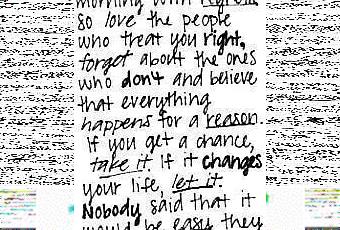 morning with regrets
so love the people
who treat you right,
forget about the ones
who don't and believe
that everything
happens for a reason.
If you get a chance,
take it. If it changes
your life, let it.
Nobody said that it
would be easy they